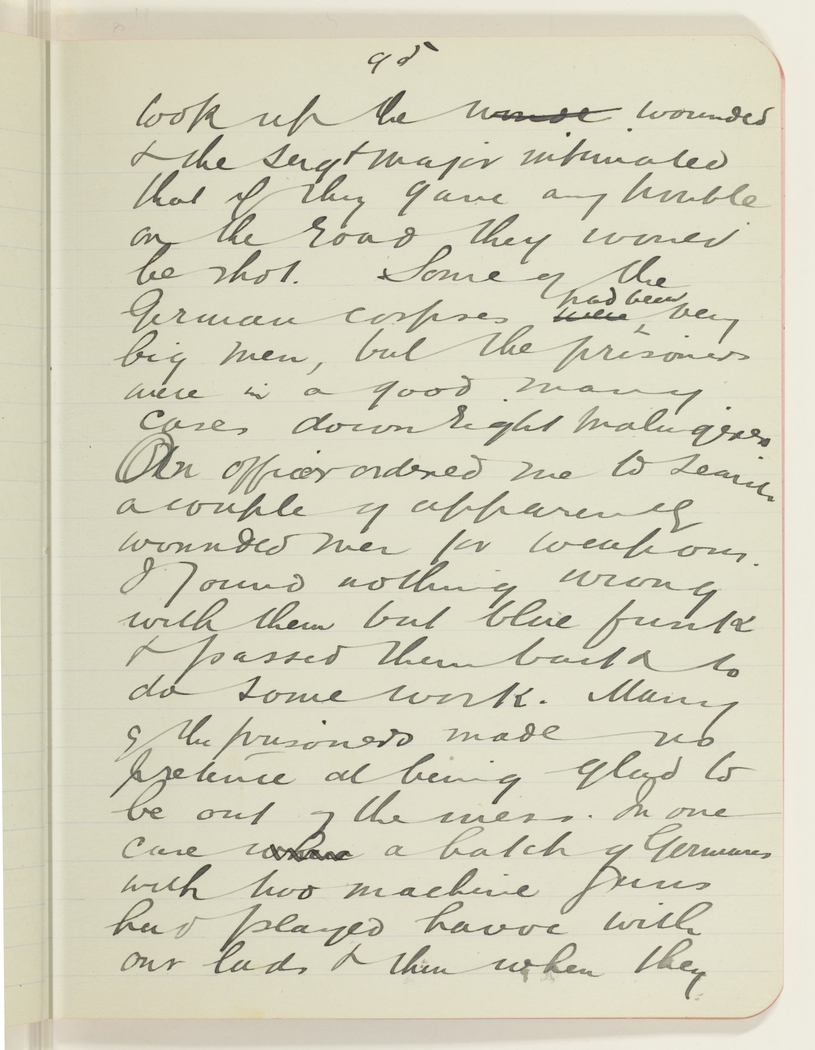 95
took up the wounded
& the sergt major intimated
that if they gave any trouble
on the road they would
be shot. Some of the
had been
German corpses were very
big men, but the prisoners
were in a good many
cases downright malingerers
An officer ordered me to search
a couple of apparently
wounded men for weapons.
I found nothing wrong
with them but blue funk
& passed them back to
do some work. Many
of the prisoners made no
pretence at being glad to
be out of the mess. In one
case where a batch of Germans
with two machine guns
had played havoc with
our lads & then when they